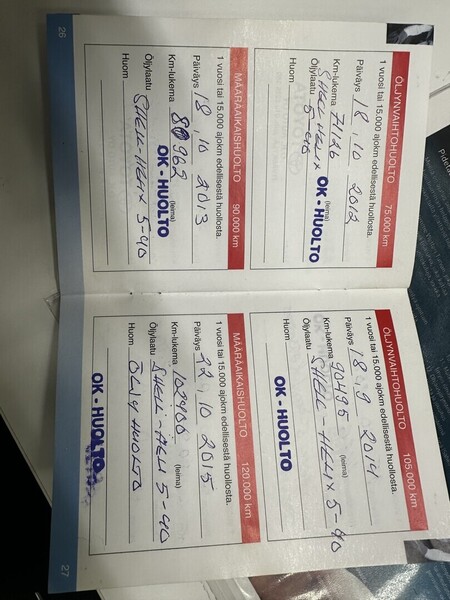 ÖLJYNVAIHTOHUOLTO 75.000 km
1 vuosi tai 15.000 ajokm edellisestä huollosta.
Päiväys 18.10 2012
Km-lukema 71126 (leima)
Öljylaatu SHELL HELIX OK - HUOLTO
5-40
Huom
MÄÄRÄAIKAISHUOLTO 90.000 km
1 vuosi tai 15.000 ajokm edellisestä huollosta.
Päiväys 18.10 2013
Km-lukema (leima)
OK - HUOLTO
Öljylaatu SHELL-HELIX 5-40
Huom
26
ÖLJYNVAIHTOHUOLTO 105.000 km
1 vuosi tai 15.000 ajokm edellisestä huollosta.
Päiväys 18.9 2014
Km-lukema 90495 (leima)
Öljylaatu SHELL-HELIX 5-40
Huom OK - HUOLTO
MÄÄRÄAIKAISHUOLTO 120.000 km
1 vuosi tai 15.000 ajokm edellisestä huollosta.
Päiväys 22.10 2015
Km-lukema (leima)
Öljylaatu SHELL-HELI 5-40
Huom HUOLTO
OK - HUOLTO
27